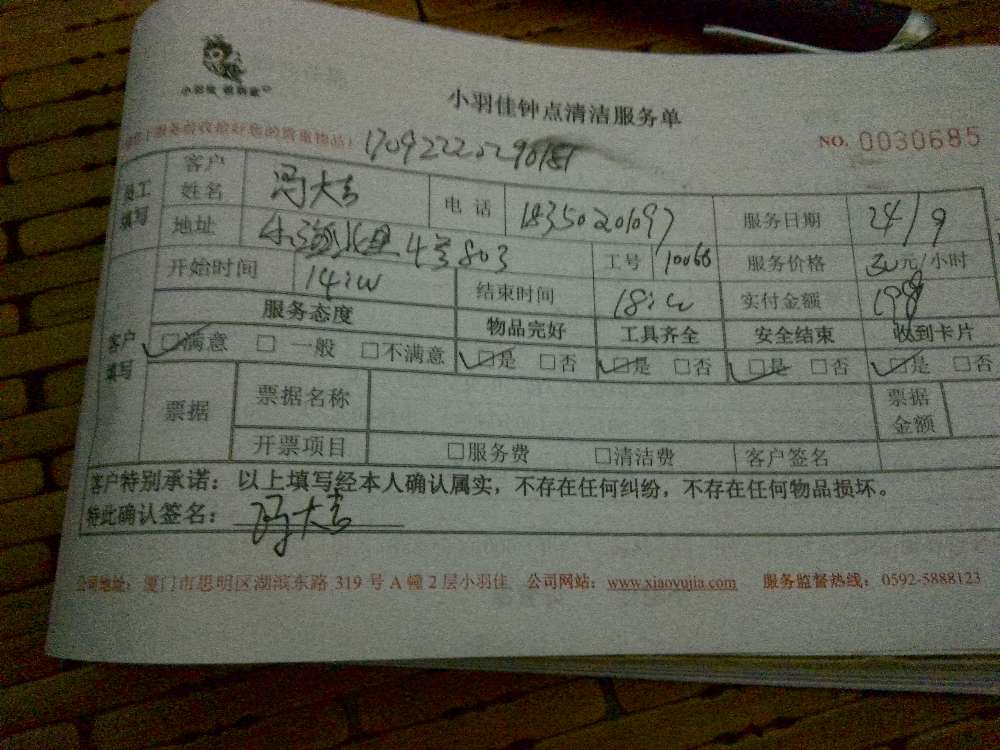 小羽佳钟点清洁服务单
NO. 0030685
客户姓名 冯大吉 电话 18350201097 服务日期 24/9
员工填写
地址 4号803 工号 服务价格 元/小时
开始时间 结束时间 实付金额
服务态度 物品完好 工具齐全 安全结束 收到卡片
客户填写
□满意 □一般 □不满意 □是 □否 □是 □否 □是 □否 □是 □否
票据 票据名称 票据金额
开票项目 □服务费 □清洁费 客户签名
客户特别承诺：以上填写经本人确认属实，不存在任何纠纷，不存在任何物品损坏。
特此确认签名： 冯大吉
公司地址：厦门市思明区湖滨东路 319 号 A 幢 2 层小羽佳 公司网站：www.xiaoyujia.com 服务监督热线：0592-5888123